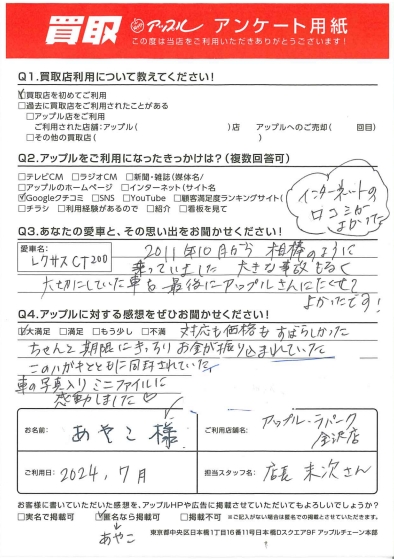 買取 アップル アンケート用紙
この度は当店をご利用いただきありがとうございます!
Q1.買取店利用について教えてください!
☑買取店を初めてご利用
□過去に買取店をご利用されたことがある
□アップル店をご利用
ご利用された店舗:アップル( )店 アップルへのご売却( 回目)
□その他の買取店( )
Q2.アップルをご利用になったきっかけは?(複数回答可)
□テレビCM □ラジオCM □新聞・雑誌(媒体名/
□アップルのホームページ □インターネット(サイト名
☑Googleクチコミ □SNS □YouTube □顧客満足度ランキングサイト(
□チラシ □利用経験があるので □紹介 □看板を見て
インターネットの
口コミが
よかった
Q3.あなたの愛車と、その思い出をお聞かせください!
愛車名:
レクサスCT200
2011年10月から 相棒のように
乗っていました 大きな事故もなく
大切にしていた車を最後にアップルさんにたくせて
よかったです!
Q4.アップルに対する感想をぜひお聞かせください!
☑大満足 □満足 □もう少し □不満 対応も価格もすばらしかった
ちゃんと期限にきっちりお金が振り込まれていた
このハガキとともに同封されていた
車の写真入りミニファイルに
感動しました♡
お名前: あやこ様
ご利用店舗名: アップル・ラパーク
金沢店
ご利用日: 2024,7月
担当スタッフ名: 店長 末次さん
お客様に書いていただいた感想を、アップルHPや広告に掲載させていただいてもよろしいでしょうか?
□実名で掲載可 ☑匿名なら掲載可 □掲載不可 ※ご記入がない場合は匿名での掲載とさせていただきます。
あやこ
東京都中央区日本橋1丁目16番11号日本橋DスクエアBF アップルチェーン本部